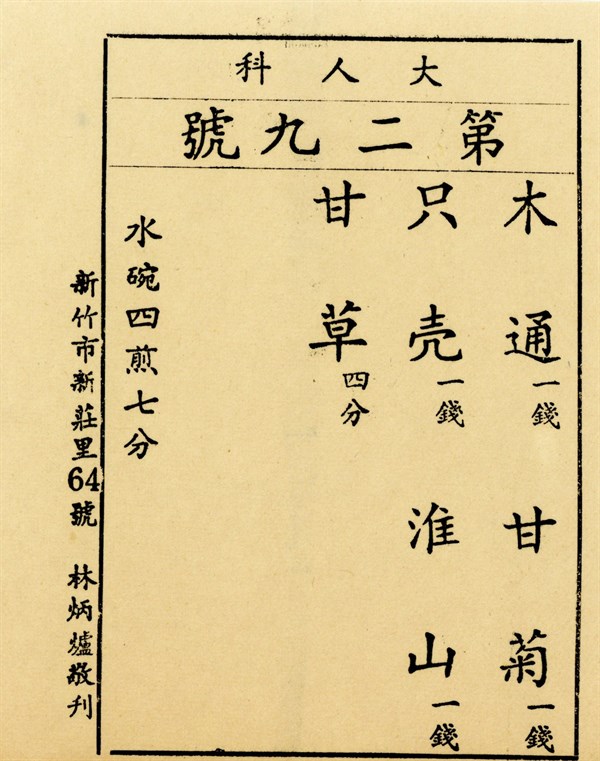 大人科
第二九號
木通一錢 甘菊一錢
只壳一錢 淮山一錢
甘草四分
水碗四煎七分
新竹市新莊里64號 林炳爐敬刊